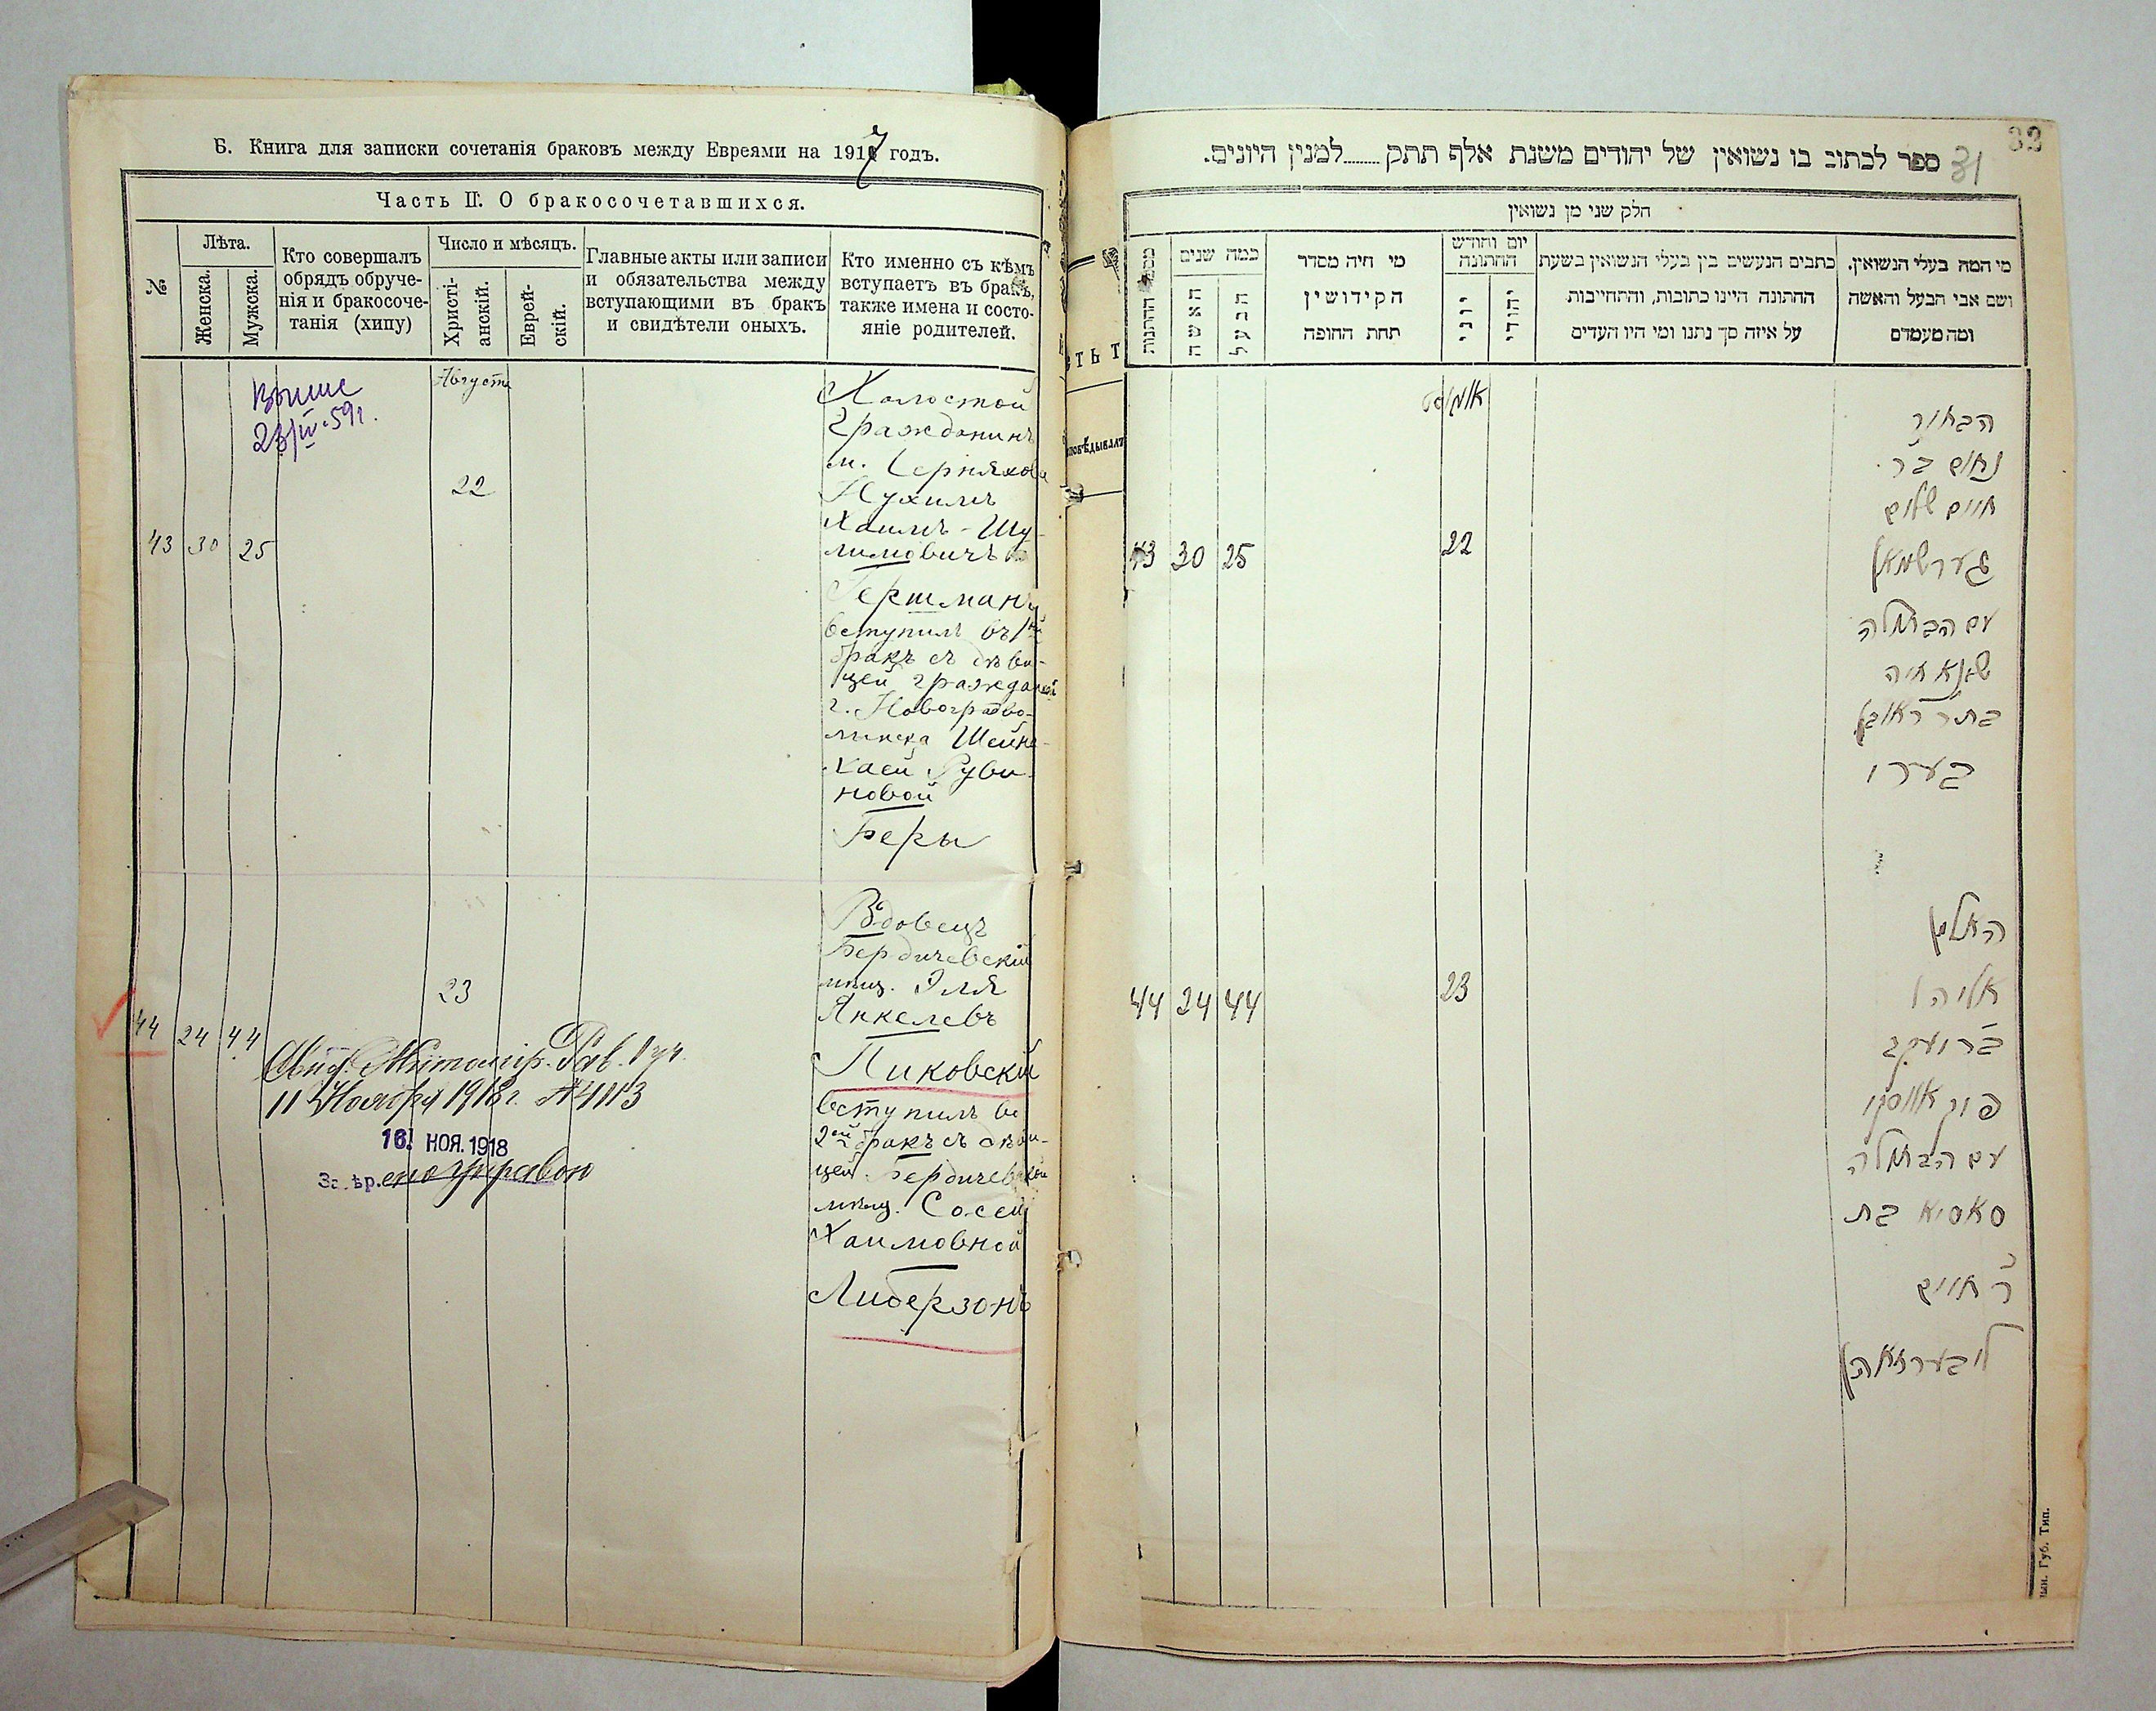 Б. Книга для записки сочетанія браковъ между Евреями на 1917 годъ.
Часть II. О бракосочетавшихся.
№
Лѣта.
Женска.
Мужска.
Кто совершалъ
обрядъ обруче-
нія и бракосоче-
танія (хипу)
Число и мѣсяцъ.
Христі-
анскій.
Еврей-
скій.
Главные акты или записи
и обязательства между
вступающими въ бракъ
и свидѣтели оныхъ.
Кто именно съ кѣмъ
вступаетъ въ бракъ,
также имена и состо-
яніе родителей.
23/IV-59г.
Августа
22
43 30 25
Холостой
гражданинъ
м. Черняхова
Нухимъ
Хаимъ-Шу-
лимовичъ
Гершманъ
вступилъ въ 1й
бракъ съ дѣви-
цей гражданкой
г. Новоградво-
линска Шейне-
Хаей Руви-
новой
Беры
23
44 24 44
Вдовецъ
Бердичевскій
мѣщ. Эля
Янкелевъ
Пиковскій
вступилъ во
2ой бракъ съ дѣви-
цей Бердичевской
мѣщ. Сосей
Хаимовной
Либерзонъ
11 Ноября 1918г. №4113
16 НОЯ. 1918
33
31
ספר לכתוב בו נשואין של יהודים משנת אלף תתק........למנין היונים.
חלק שני מן נשואין
מספר
החתונות
כמה שנים
האשה
הבעל
מי היה מסדר
הקידושין
תחת החופה
יום וחודש
החתונה
יוני
יהודי
כתבים הנעשים בין בעלי הנשואין בשעת
החתונה היינו כתובות, והתחייבות
על איזה סך נתנו ומי היו העדים
מי המה בעלי הנשואין.
ושם אבי הבעל והאשה
ומה מעמדם
אויגוסט
43 30 25
22
הבחור
נחום בר
חיים שלום
גערשמאן
עם הבתולה
שיינא חיה
בת ר ראובן
בערי
44 24 44
23
האלמן
אליהו
בר יעקב
פיקאווסקי
עם הבתולה
סאסיא בת
ר חיים
ליבערזאהן
Губ. Тип.